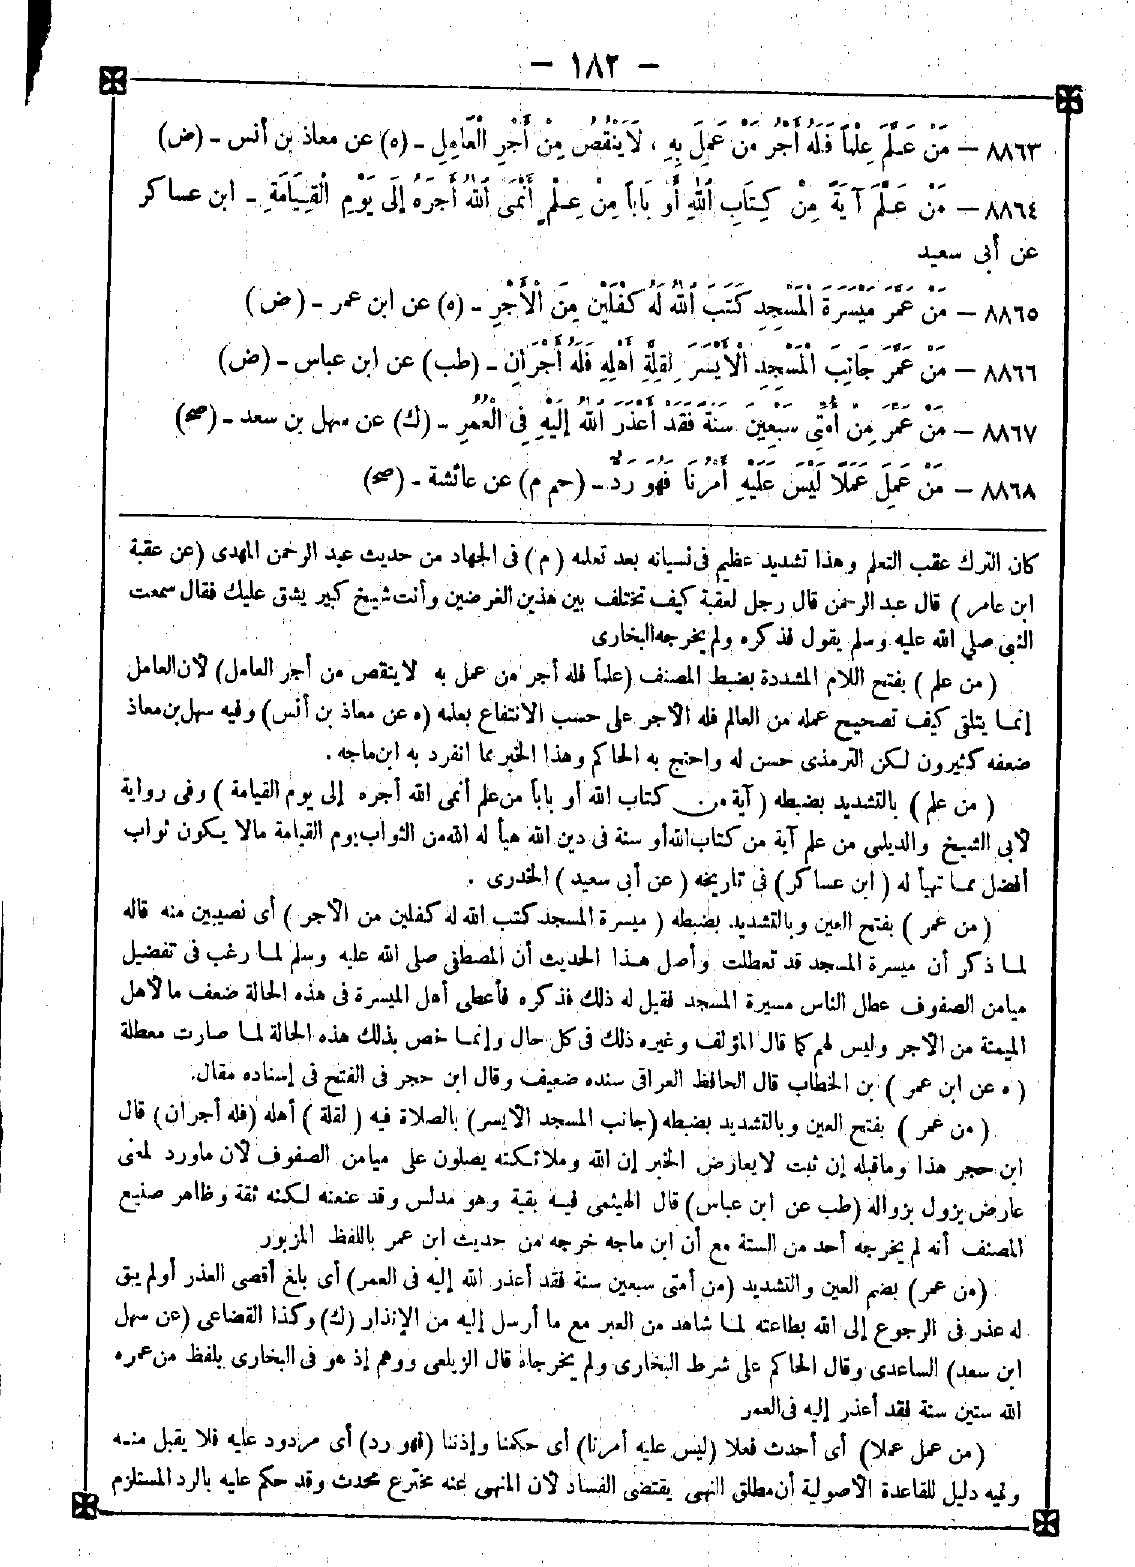 – ١٨٢ –
٨٨٦٣ – مَنْ عَلَّمَ عِلْمًا فَلَهُ أَجْرُ مَنْ عَمِلَ بِهِ ، لَا يَنْقُصُ مِنْ أَجْرِ الْعَامِلِ – (ه) عن معاذ بن أنس – (ض)
٨٨٦٤ – مَنْ عَلَّمَ آيَةً مِنْ كِتَابِ اللهِ أَوْ بَابًا مِنْ عِلْمٍ أَنْمَى اللهُ أَجْرَهُ إلَى يَوْمِ الْقِيَامَةِ – ابن عساكر
عن أبى سعيد
٨٨٦٥ – مَنْ عَمَّرَ مَيْسَرَةَ الْمَسْجِدِ كَتَبَ اللهُ لَهُ كِفْلَيْنِ مِنَ الْأَجْرِ – (ه) عن ابن عمر – (ض)
٨٨٦٦ – مَنْ عَمَّرَ جَانِبَ الْمَسْجِدِ الْأَيْسَرَ لِقِلَّةِ أَهْلِهِ فَلَهُ أَجْرَانِ – (طب) عن ابن عباس – (ض)
٨٨٦٧ – مَنْ عَمَّرَ مِنْ أُمَّتِى سَبْعِينَ سَنَةً فَقَدْ أَعْذَرَ اللهُ إِلَيْهِ فِى الْعُمُرِ – (ك) عن سهل بن سعد – (صح)
٨٨٦٨ – مَنْ عَمِلَ عَمَلًا لَيْسَ عَلَيْهِ أَمْرُنَا فَهُوَ رَدٌّ – (حم م) عن عائشة – (صح)
كان الترك عقب التعلم وهذا تشديد عظيم فى نسيانه بعد تعلمه (م) فى الجهاد من حديث عبد الرحمن المهدى (عن عقبة
ابن عامر) قال عبد الرحمن قال رجل لعقبة كيف تختلف بين هذين الغرضين وأنت شيخ كبير يشق عليك فقال سمعت
النبى صلى الله عليه وسلم يقول فذكره ولم يخرجه البخارى
(من علم) بفتح اللام المشددة بضبط المصنف (علماً فله أجر من عمل به لا ينقص من أجر العامل) لأن العامل
إنما يتلقى كيف تصحيح عمله من العالم فله الأجر على حسب الانتفاع بعلمه (ه عن معاذ بن أنس) وفيه سهل بن معاذ
ضعفه كثيرون لكن الترمذى حسن له واحتج به الحاكم وهذا الخبر مما انفرد به ابن ماجه .
(من علم) بالتشديد بضبطه (آية من كتاب الله أو باباً من علم أنمى الله أجره إلى يوم القيامة) وفى رواية
لأبى الشيخ والديلمى من علم آية من كتاب الله أو سنة فى دين الله هيأ له الله من الثواب يوم القيامة مالا يكون ثواب
أفضل مما تهيأ له (ابن عساكر) فى تاريخه (عن أبى سعيد) الخدرى .
(من عمر) بفتح العين وبالتشديد بضبطه (ميسرة المسجد كتب الله له كفلين من الأجر) أى نصيبين منه قاله
لما ذكر أن ميسرة المسجد قد تعطلت وأصل هذا الحديث أن المصطفى صلى الله عليه وسلم لما رغب فى تفضيل
ميامن الصفوف عطل الناس مسيرة المسجد فقيل له ذلك فذكره فأعطى أهل الميسرة فى هذه الحالة ضعف ما لأهل
الميمنة من الأجر وليس لهم كما قال المؤلف وغيره ذلك فى كل حال وإنما خص بذلك هذه الحالة لما صارت معطلة
(ه عن ابن عمر) بن الخطاب قال الحافظ العراقى سنده ضعيف وقال ابن حجر فى الفتح فى إسناده مقال.
(من عمر) بفتح العين وبالتشديد بضبطه (جانب المسجد الأيسر) بالصلاة فيه (لقلة) أهله (فله أجران) قال
ابن حجر هذا وما قبله إن ثبت لا يعارض الخبر إن الله وملائكته يصلون على ميامن الصفوف لأن ماورد لمعنى
عارض يزول بزواله (طب عن ابن عباس) قال الهيثمى فيه بقية وهو مدلس وقد عنعنه لكنه ثقة وظاهر صنيع
المصنف أنه لم يخرجه أحد من الستة مع أن ابن ماجه خرجه من حديث ابن عمر باللفظ المزبور
(من عمر) بضم العين والتشديد (من أمتى سبعين سنة فقد أعذر الله إليه فى العمر) أى بلغ أقصى العذر أو لم يبق
له عذر فى الرجوع إلى الله بطاعته لما شاهد من العبر مع ما أرسل إليه من الإنذار (ك) وكذا القضاعى (عن سهل
ابن سعد) الساعدى وقال الحاكم على شرط البخارى ولم يخرجاه قال الزيلعى ووهم إذ هو فى البخارى بلفظ من عمره
الله ستين سنة فقد أعذر إليه فى العمر
(من عمل عملا) أى أحدث فعلا (ليس عليه أمرنا) أى حكمنا وإذننا (فهو رد) أى مردود عليه فلا يقبل منه
وفيه دليل للقاعدة الأصولية أن مطلق النهى يقتضى الفساد لأن المنهى عنه مخترع محدث وقد حكم عليه بالرد المستلزم